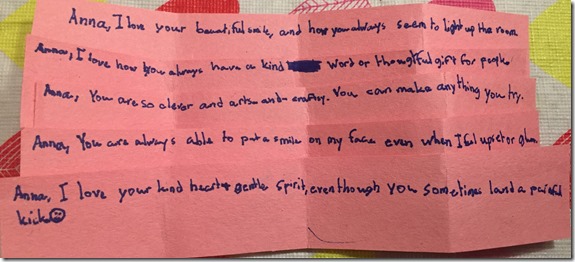 Anna, I love your beautiful smile, and how you always seem to light up the room.
Anna, I love how you always have a kind word or thoughtful gift for people
Anna, You are so clever and artsy-and-craftsy. You can make anything you try.
Anna, You are always able to put a smile on my face even when I feel upset or glum.
Anna, I love your kind heart & gentle spirit, even though you sometimes land a painful
kick